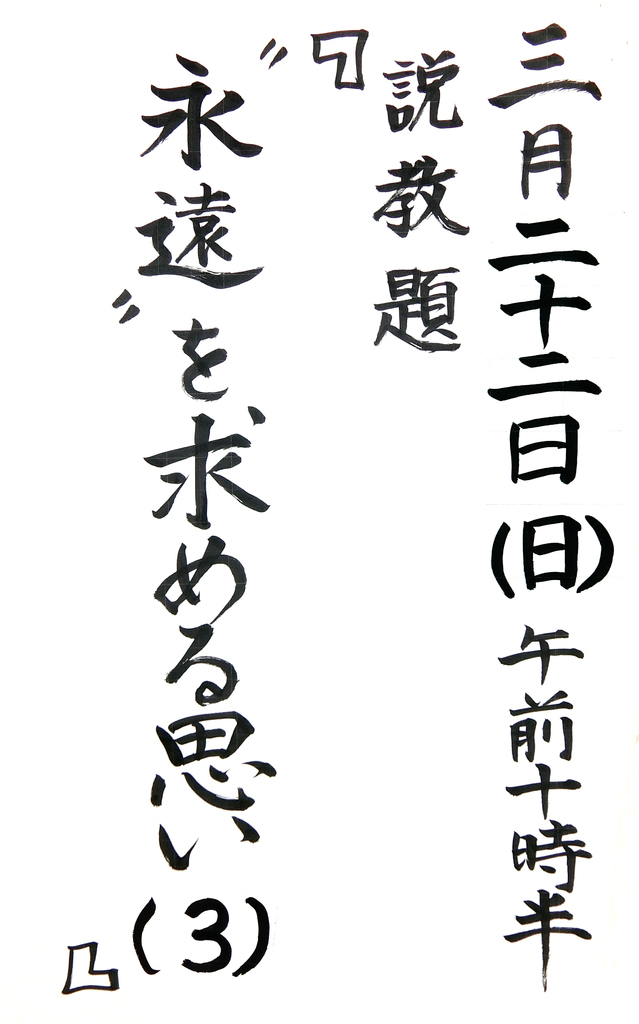 三月二十二日(日)午前十時半
説教題
『〝永遠〟を求める思い(3)』